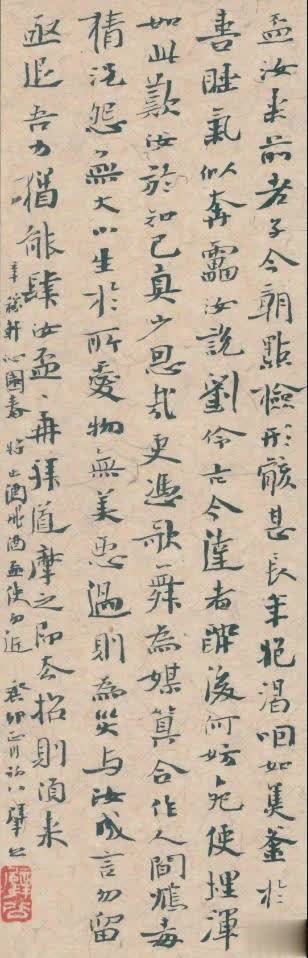 盃汝来前老子今朝點檢形骸甚長年抱渴咽如焦釜於
喜睡氣似奔靁汝說劉伶古今達者醉後何妨死便埋渾
如此歎汝於知己真少恩哉更憑歌舞為媒算合作人間鴆毒
猜況怨無大小生於所愛物無美惡過則為災與汝成言勿留
亟退吾力猶能肆汝盃〻再拜道摩之即去招則須来
辛稼軒沁園春將止酒戒酒盃使勿近癸卯正月初八